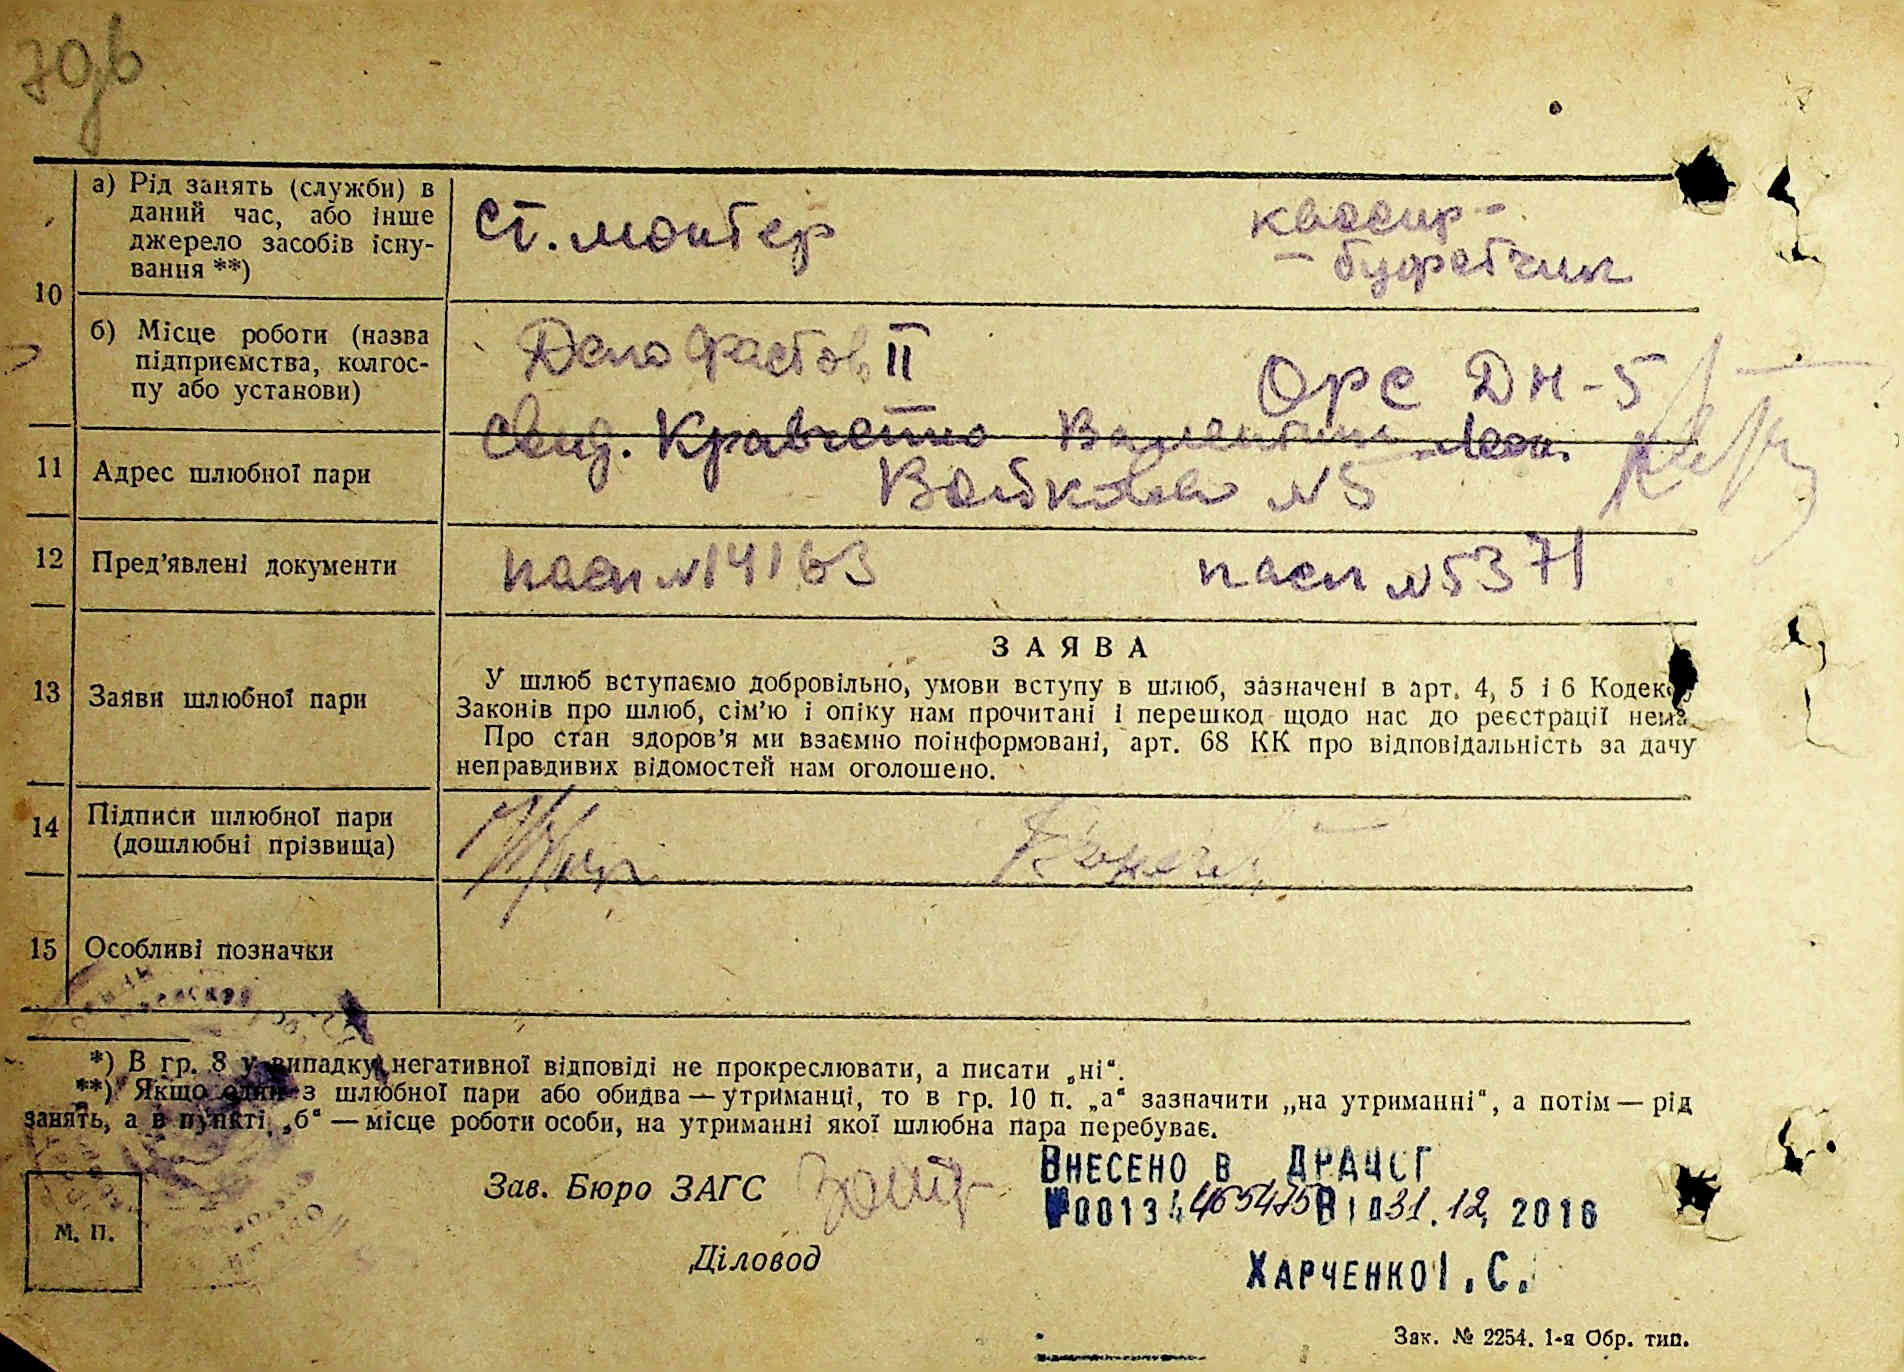 10
а) Рід занять (служби) в
даний час, або інше
джерело засобів існу-
вання **)
ст. монтер
кассир-
-буфетчик
б) Місце роботи (назва
підприємства, колгос-
пу або установи)
Депо Фастов II
Орс ДН-5
Свид. Кравченко Валентина Леон.
11
Адрес шлюбної пари
Войкова №5
12
Пред'явлені документи
пасп №14163
пасп №5371
13
Заяви шлюбної пари
ЗАЯВА
У шлюб вступаємо добровільно, умови вступу в шлюб, зазначені в арт. 4, 5 і 6 Кодексу
Законів про шлюб, сім'ю і опіку нам прочитані і перешкод щодо нас до реєстрації нема.
Про стан здоров'я ми взаємно поінформовані, арт. 68 КК про відповідальність за дачу
неправдивих відомостей нам оголошено.
14
Підписи шлюбної пари
(дошлюбні прізвища)
15
Особливі позначки
*) В гр. 8 у випадку негативної відповіді не прокреслювати, а писати „ні“.
**) Якщо один з шлюбної пари або обидва — утриманці, то в гр. 10 п. „а“ зазначити „на утриманні“, а потім — рід
занять, а в пункті „б“ — місце роботи особи, на утриманні якої шлюбна пара перебуває.
М. П.
Зав. Бюро ЗАГС
Діловод
Внесено в ДРАЦСГ
№00134465475 Від 31.12. 2016
Харченко І.С.
Зак. № 2254. 1-я Обр. тип.